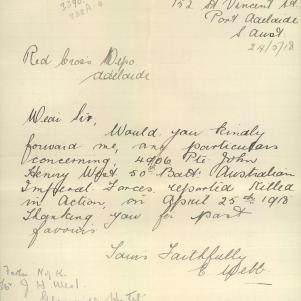 152 St Vincent St
Port Adelaide
S Aust
24/5/18
Red Cross Depo
Adelaide
Dear Sir,
Would you kindly
forward me, any particulars
concerning, 4906 Pte John
Henry West 50th Batt: Australian
Imperal Forces, reported Killed
in Action, on April 25th 1918
Thanking you for past
favours
Yours Faithfully
E Webb
J H West